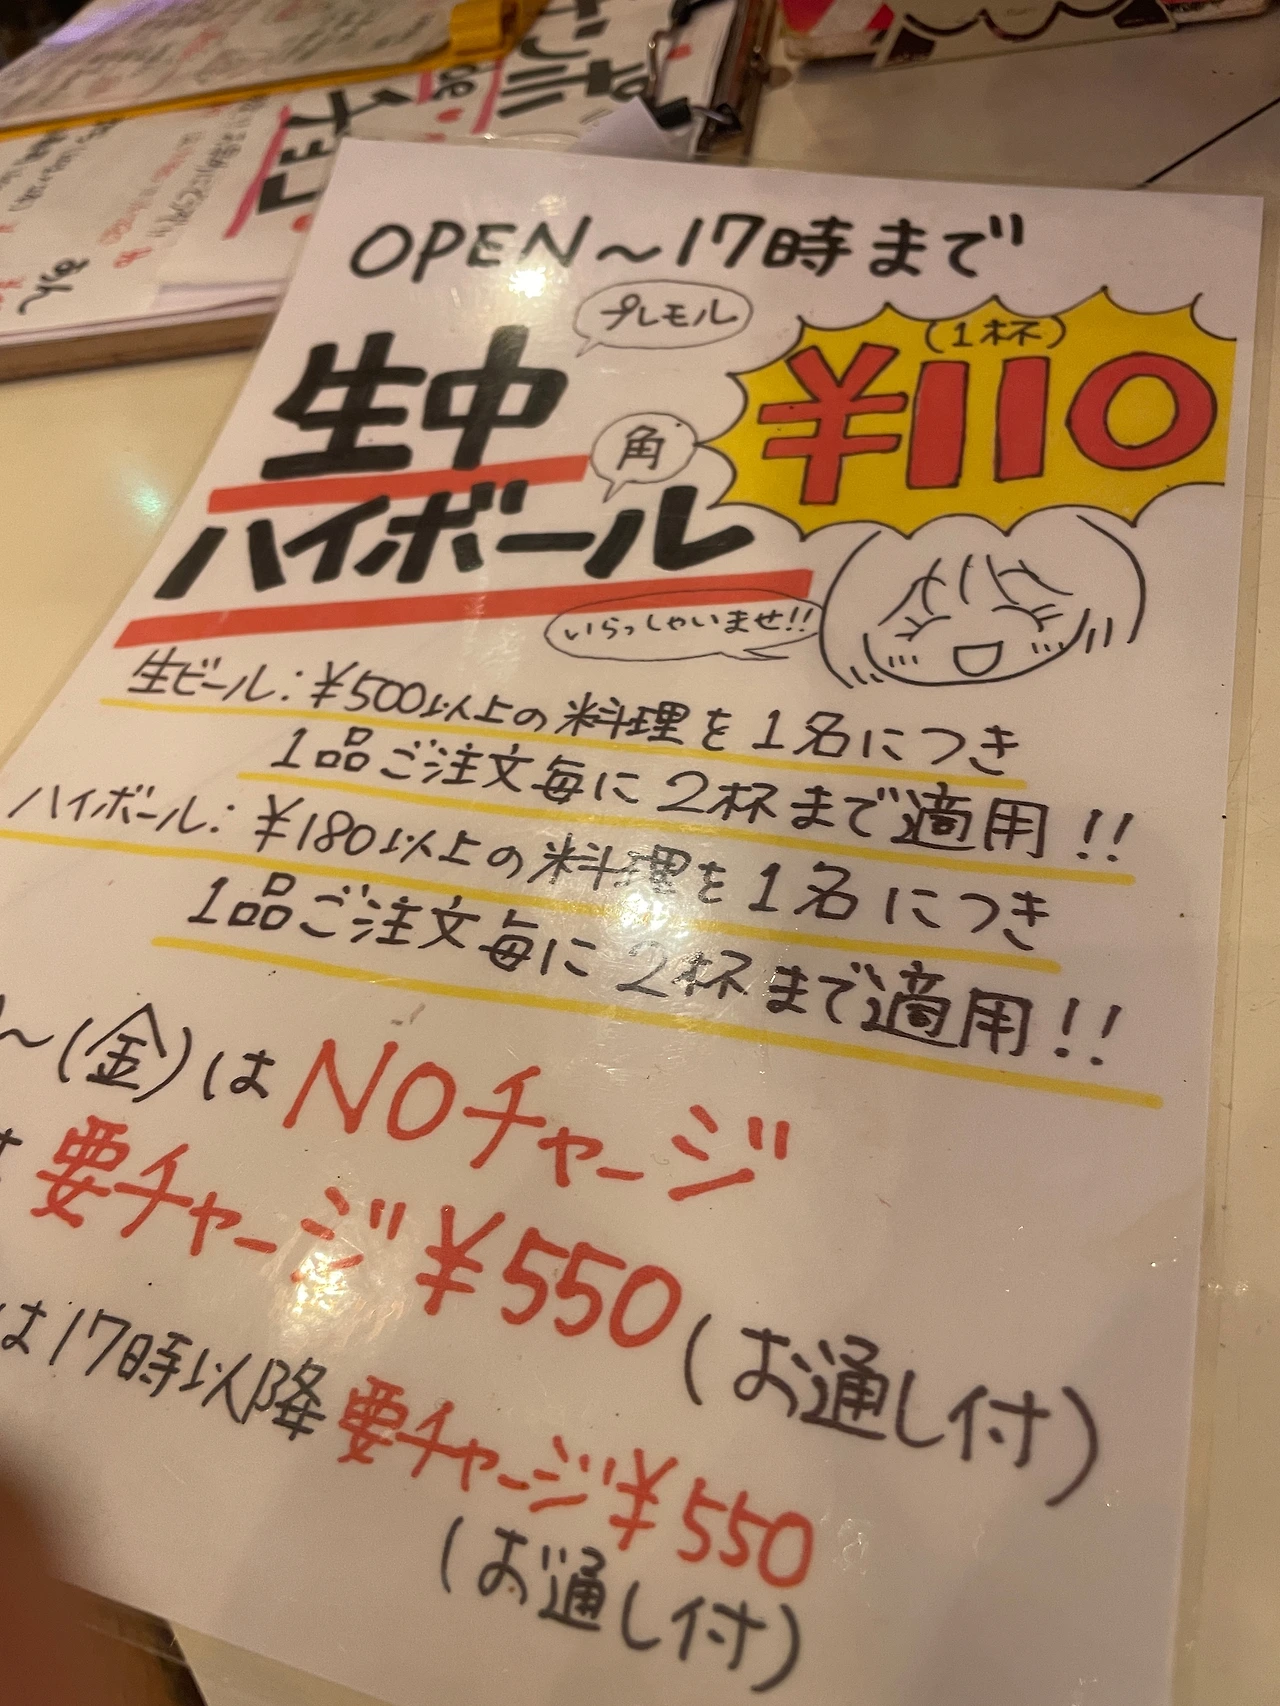 チョコ
OPEN～17時まで
プレモル
生中
(1杯)
¥110
角
ハイボール
いらっしゃいませ!!
生ビール:¥500以上の料理を1名につき
1品ご注文毎に2杯まで適用!!
ハイボール:¥180以上の料理を1名につき
1品ご注文毎に2杯まで適用!!
～(金)はNOチャージ
要チャージ¥550(お通し付)
は17時以降要チャージ¥550
(お通し付)